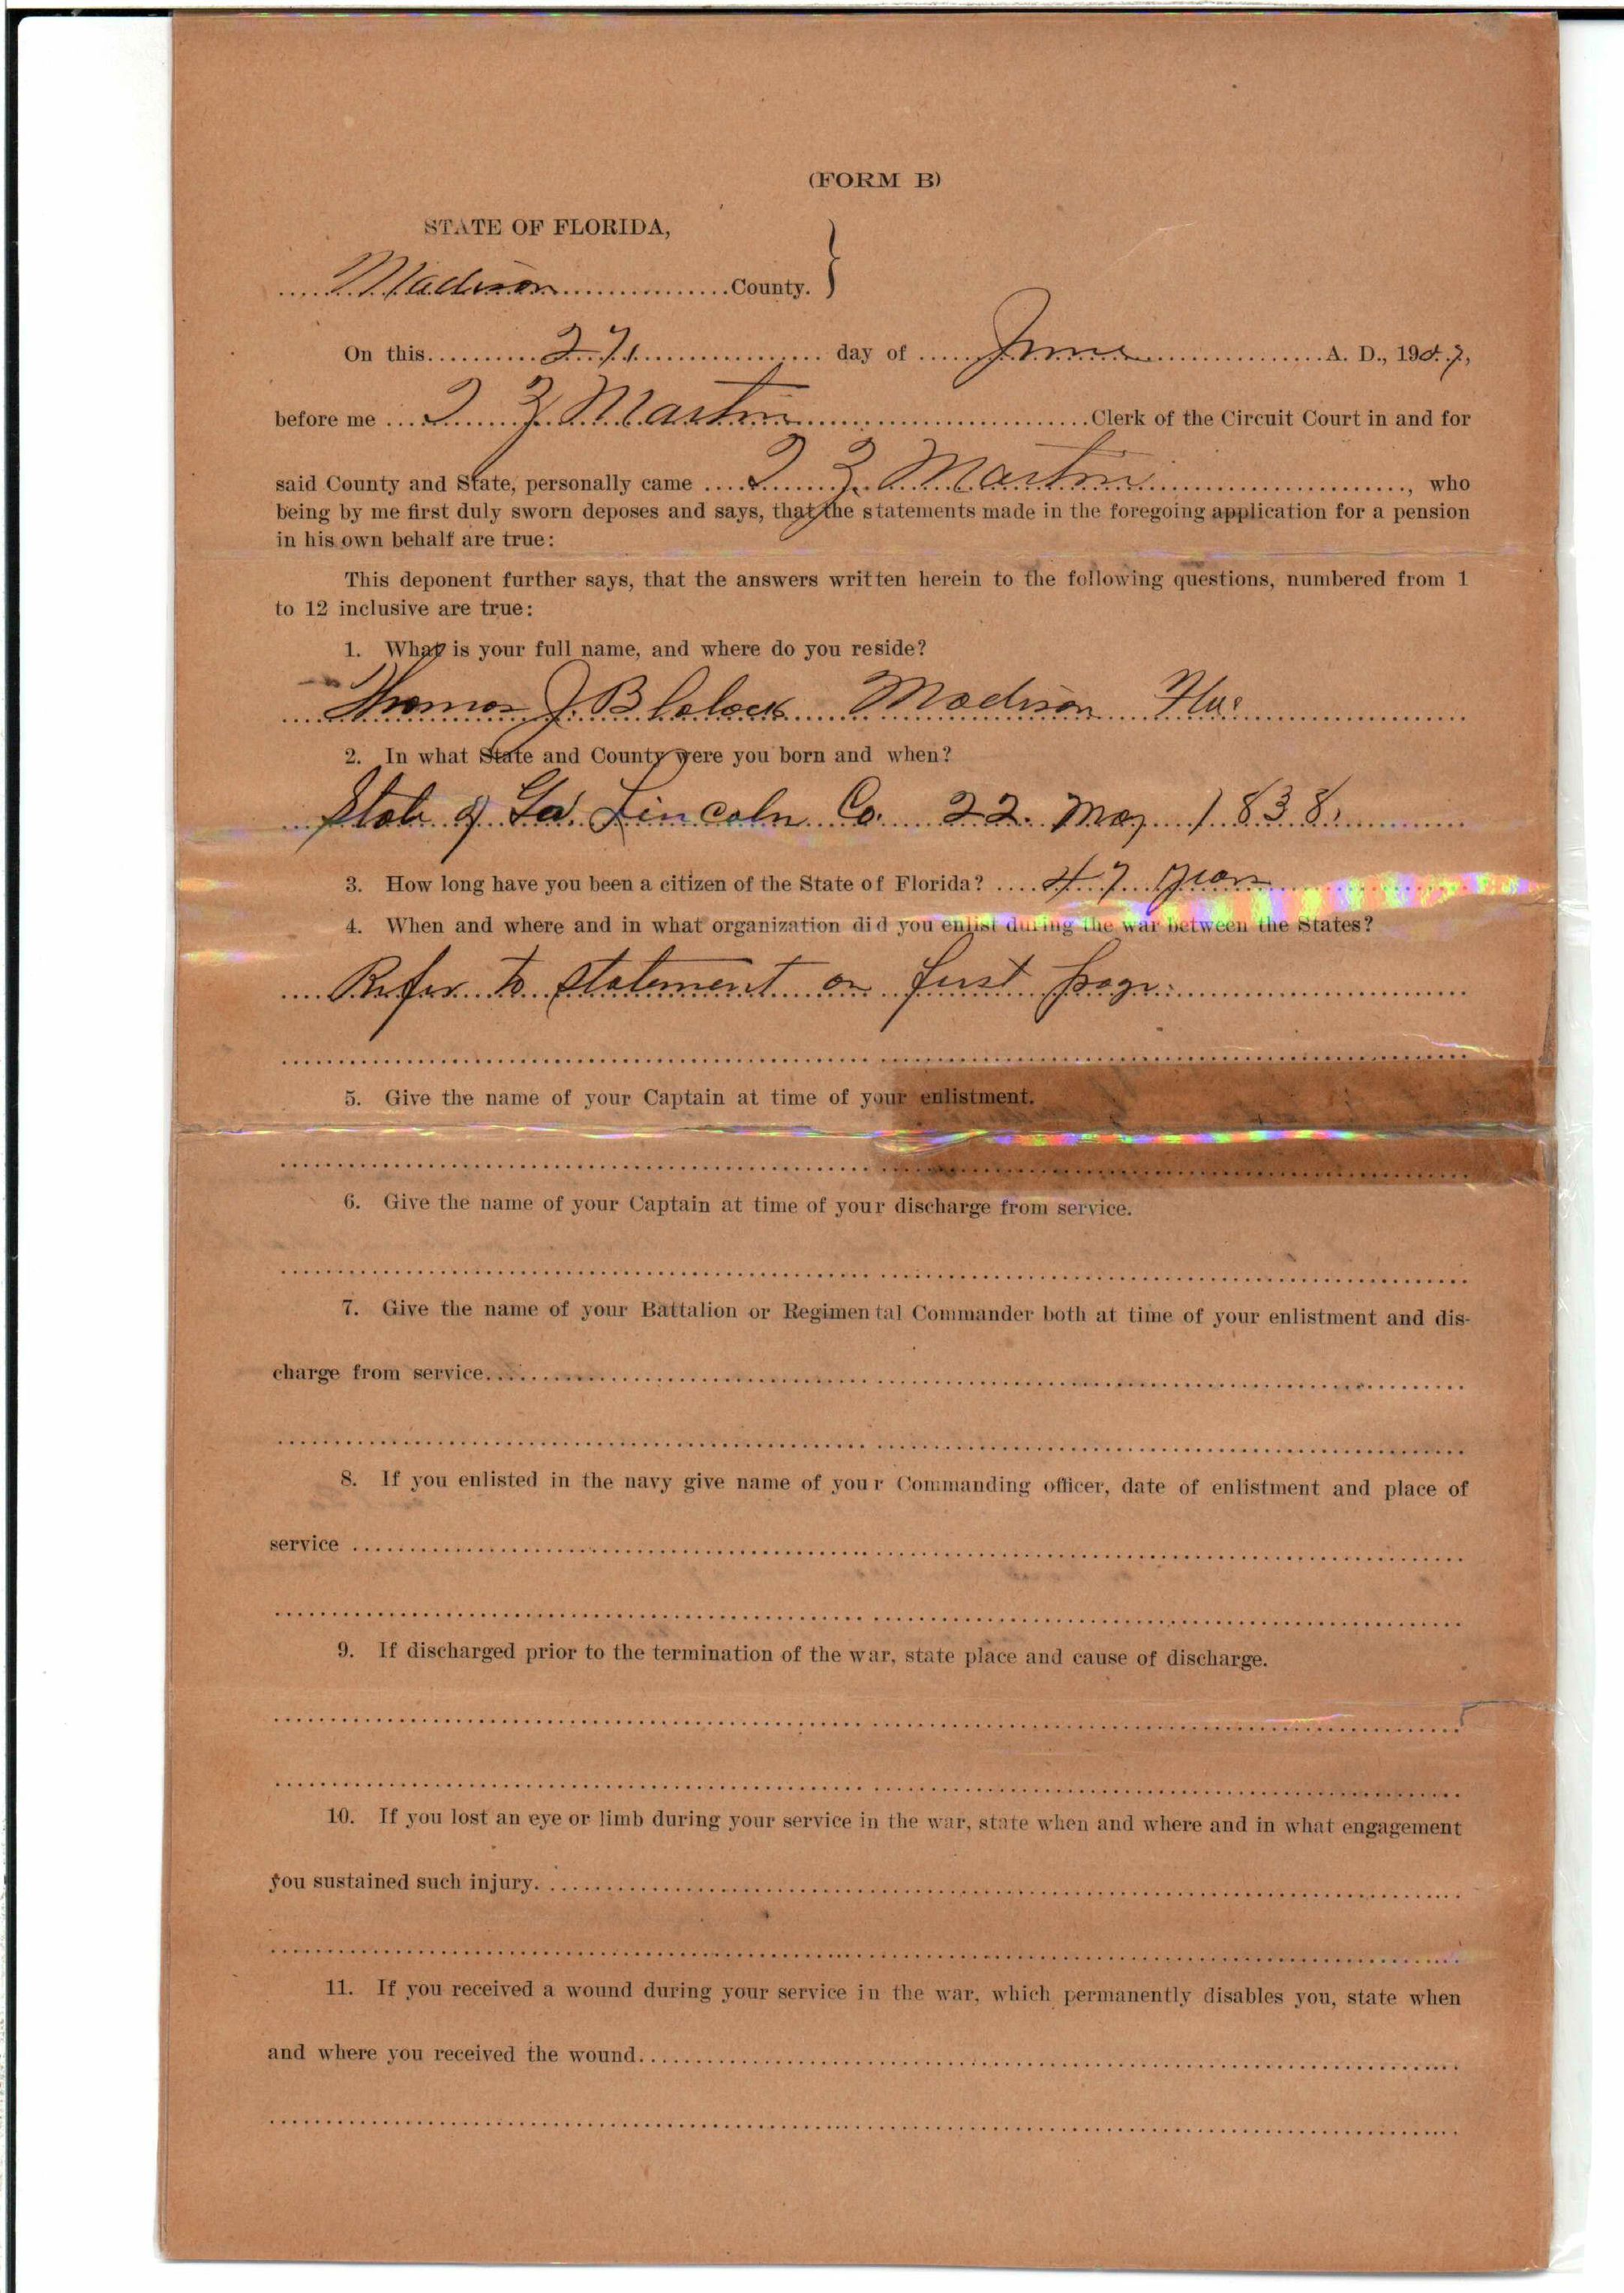 (FORM B)
STATE OF FLORIDA,
Madison County.
On this 27 day of June A. D., 1907,
before me Martin Clerk of the Circuit Court in and for
said County and State, personally came Martin, who
being by me first duly sworn deposes and says, that the statements made in the foregoing application for a pension
in his own behalf are true:
This deponent further says, that the answers written herein to the following questions, numbered from 1
to 12 inclusive are true:
1. What is your full name, and where do you reside?
Thomas J. Blalock Madison Fla.
2. In what State and County were you born and when?
State of Ga. Lincoln Co. 22. May 1838.
3. How long have you been a citizen of the State of Florida? 47 years
4. When and where and in what organization did you enlist during the war between the States?
Refer to statement on first page.
5. Give the name of your Captain at time of your enlistment.
6. Give the name of your Captain at time of your discharge from service.
7. Give the name of your Battalion or Regimental Commander both at time of your enlistment and dis-
charge from service.
8. If you enlisted in the navy give name of your Commanding officer, date of enlistment and place of
service
9. If discharged prior to the termination of the war, state place and cause of discharge.
10. If you lost an eye or limb during your service in the war, state when and where and in what engagement
you sustained such injury.
11. If you received a wound during your service in the war, which permanently disables you, state when
and where you received the wound.